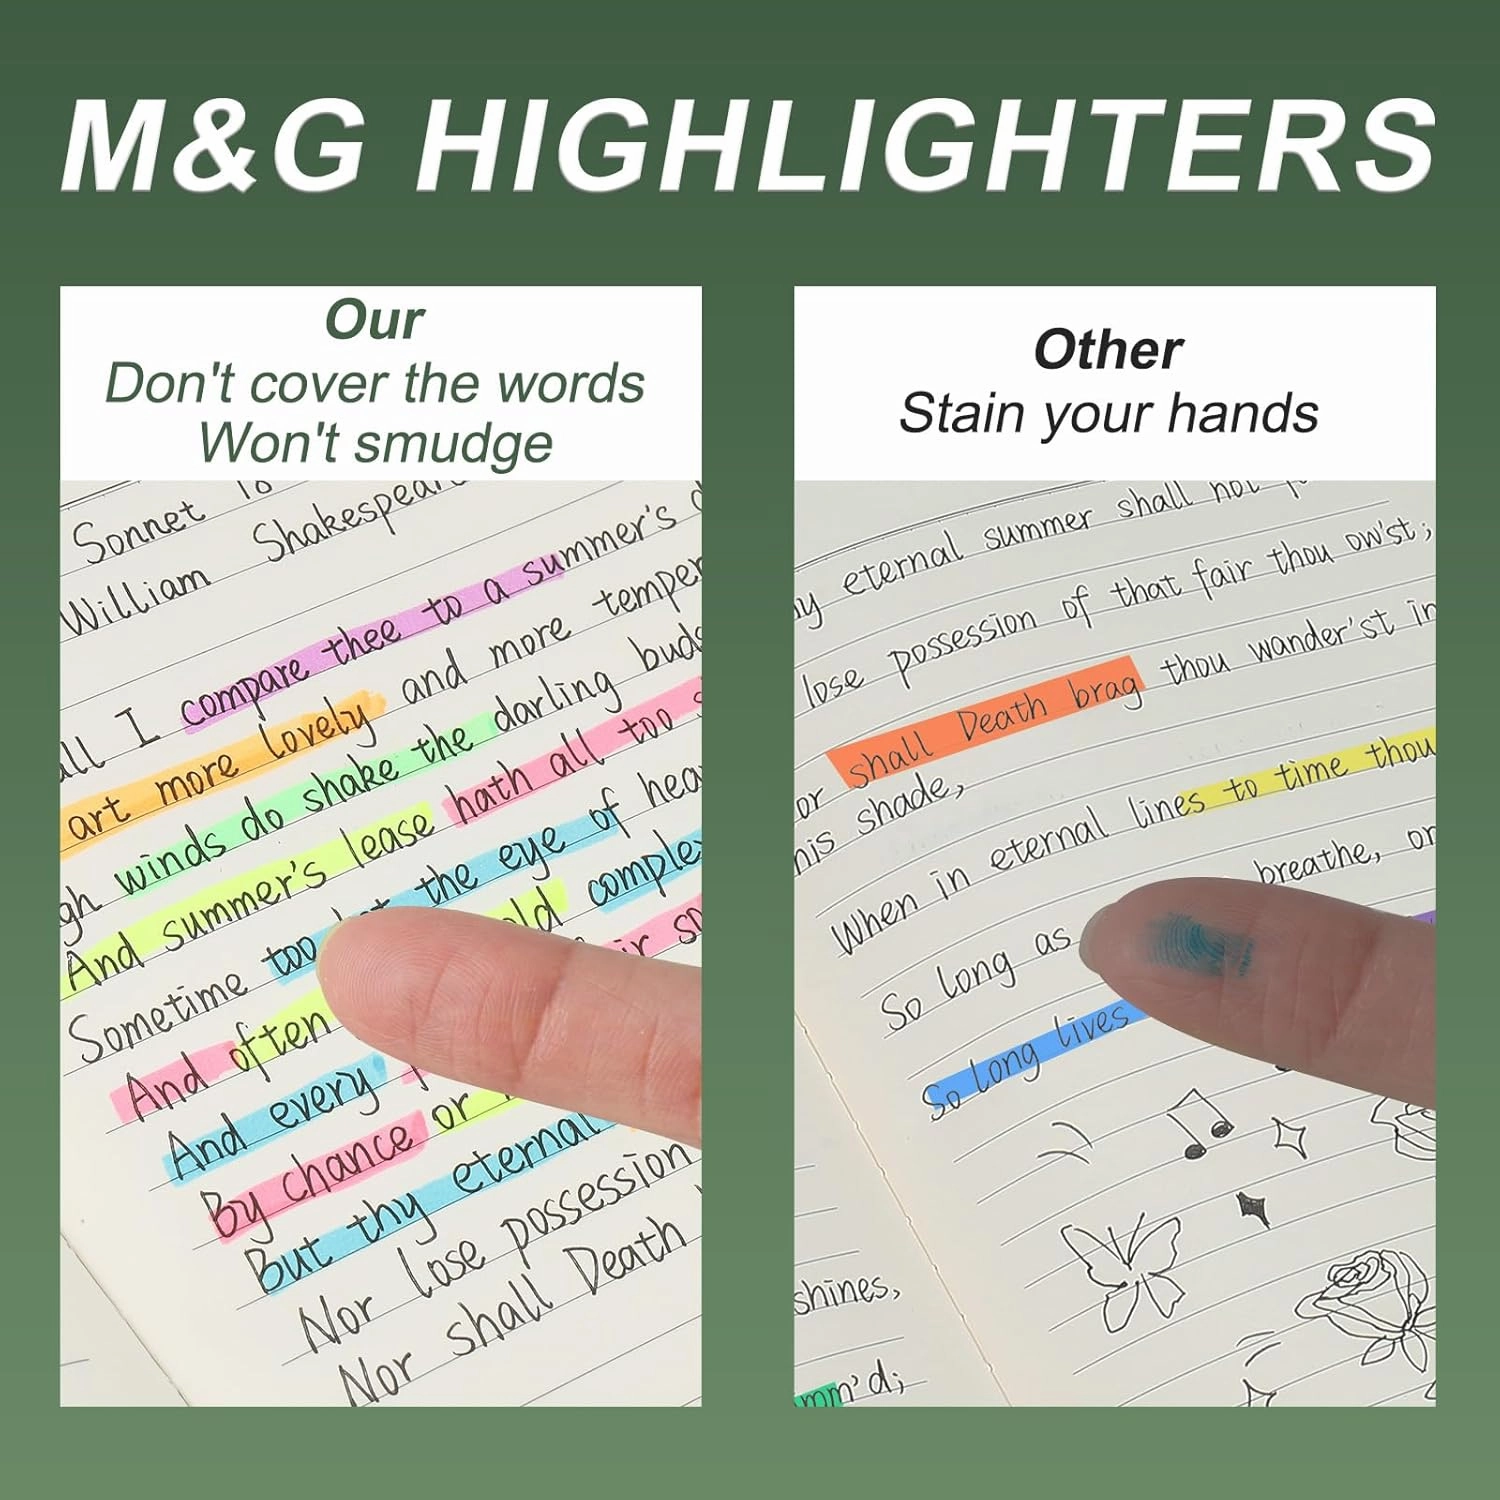 M&G HIGHLIGHTERS
Our
Don't cover the words
Won't smudge
Sonnet 18
William Shakespear
all I compare thee to a summer's
art more lovely and more temper
gh winds do shake the darling buds
And summer's lease hath all too
Sometime too the eye of hea
And often old complex
And every
By chance or
But thy eternal
Nor lose possession
Nor shall Death
Other
Stain your hands
hy eternal summer shall not
lose possession of that fair thou ow'st;
or shall Death brag thou wander'st in
his shade,
When in eternal lines to time thou
So long as breathe, or
So long lives
shines,
mm'd;